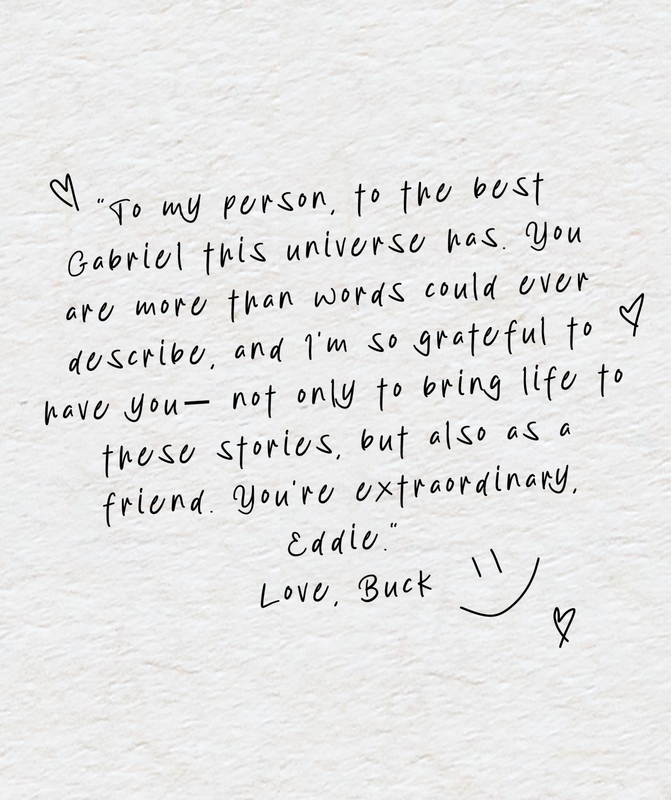 "To my person, to the best
Gabriel this universe has. You
are more than words could ever
describe, and I'm so grateful to
have you— not only to bring life to
these stories, but also as a
friend. You're extraordinary,
Eddie."
Love, Buck